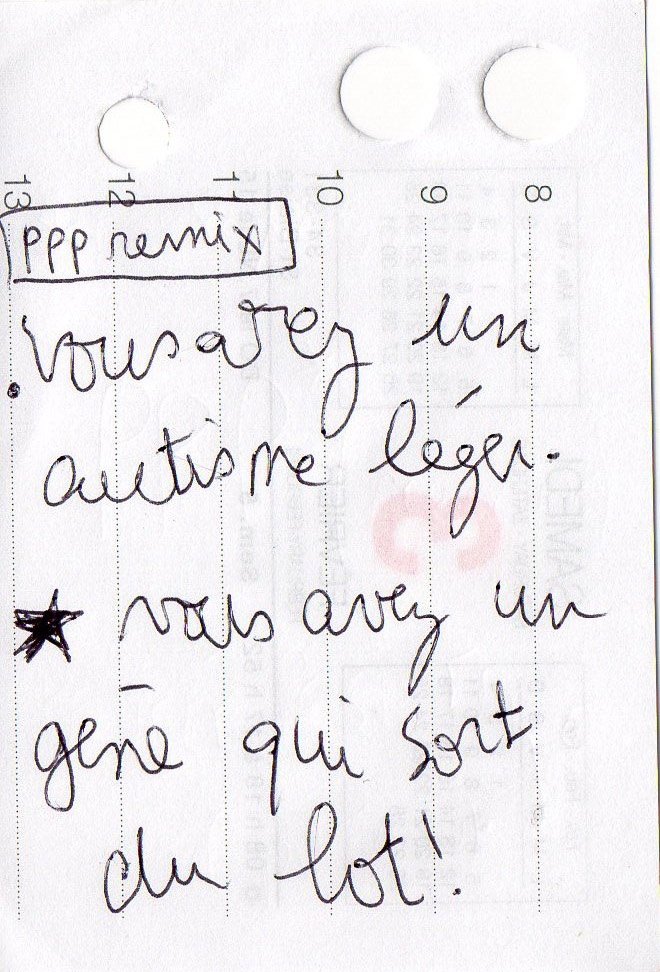 13 12 11 10 9 8
PPP remix
. Vous avez un
autisme léger.
★ vous avez un
gène qui sort
du lot!
SAMEDI
3
FÉVRIER